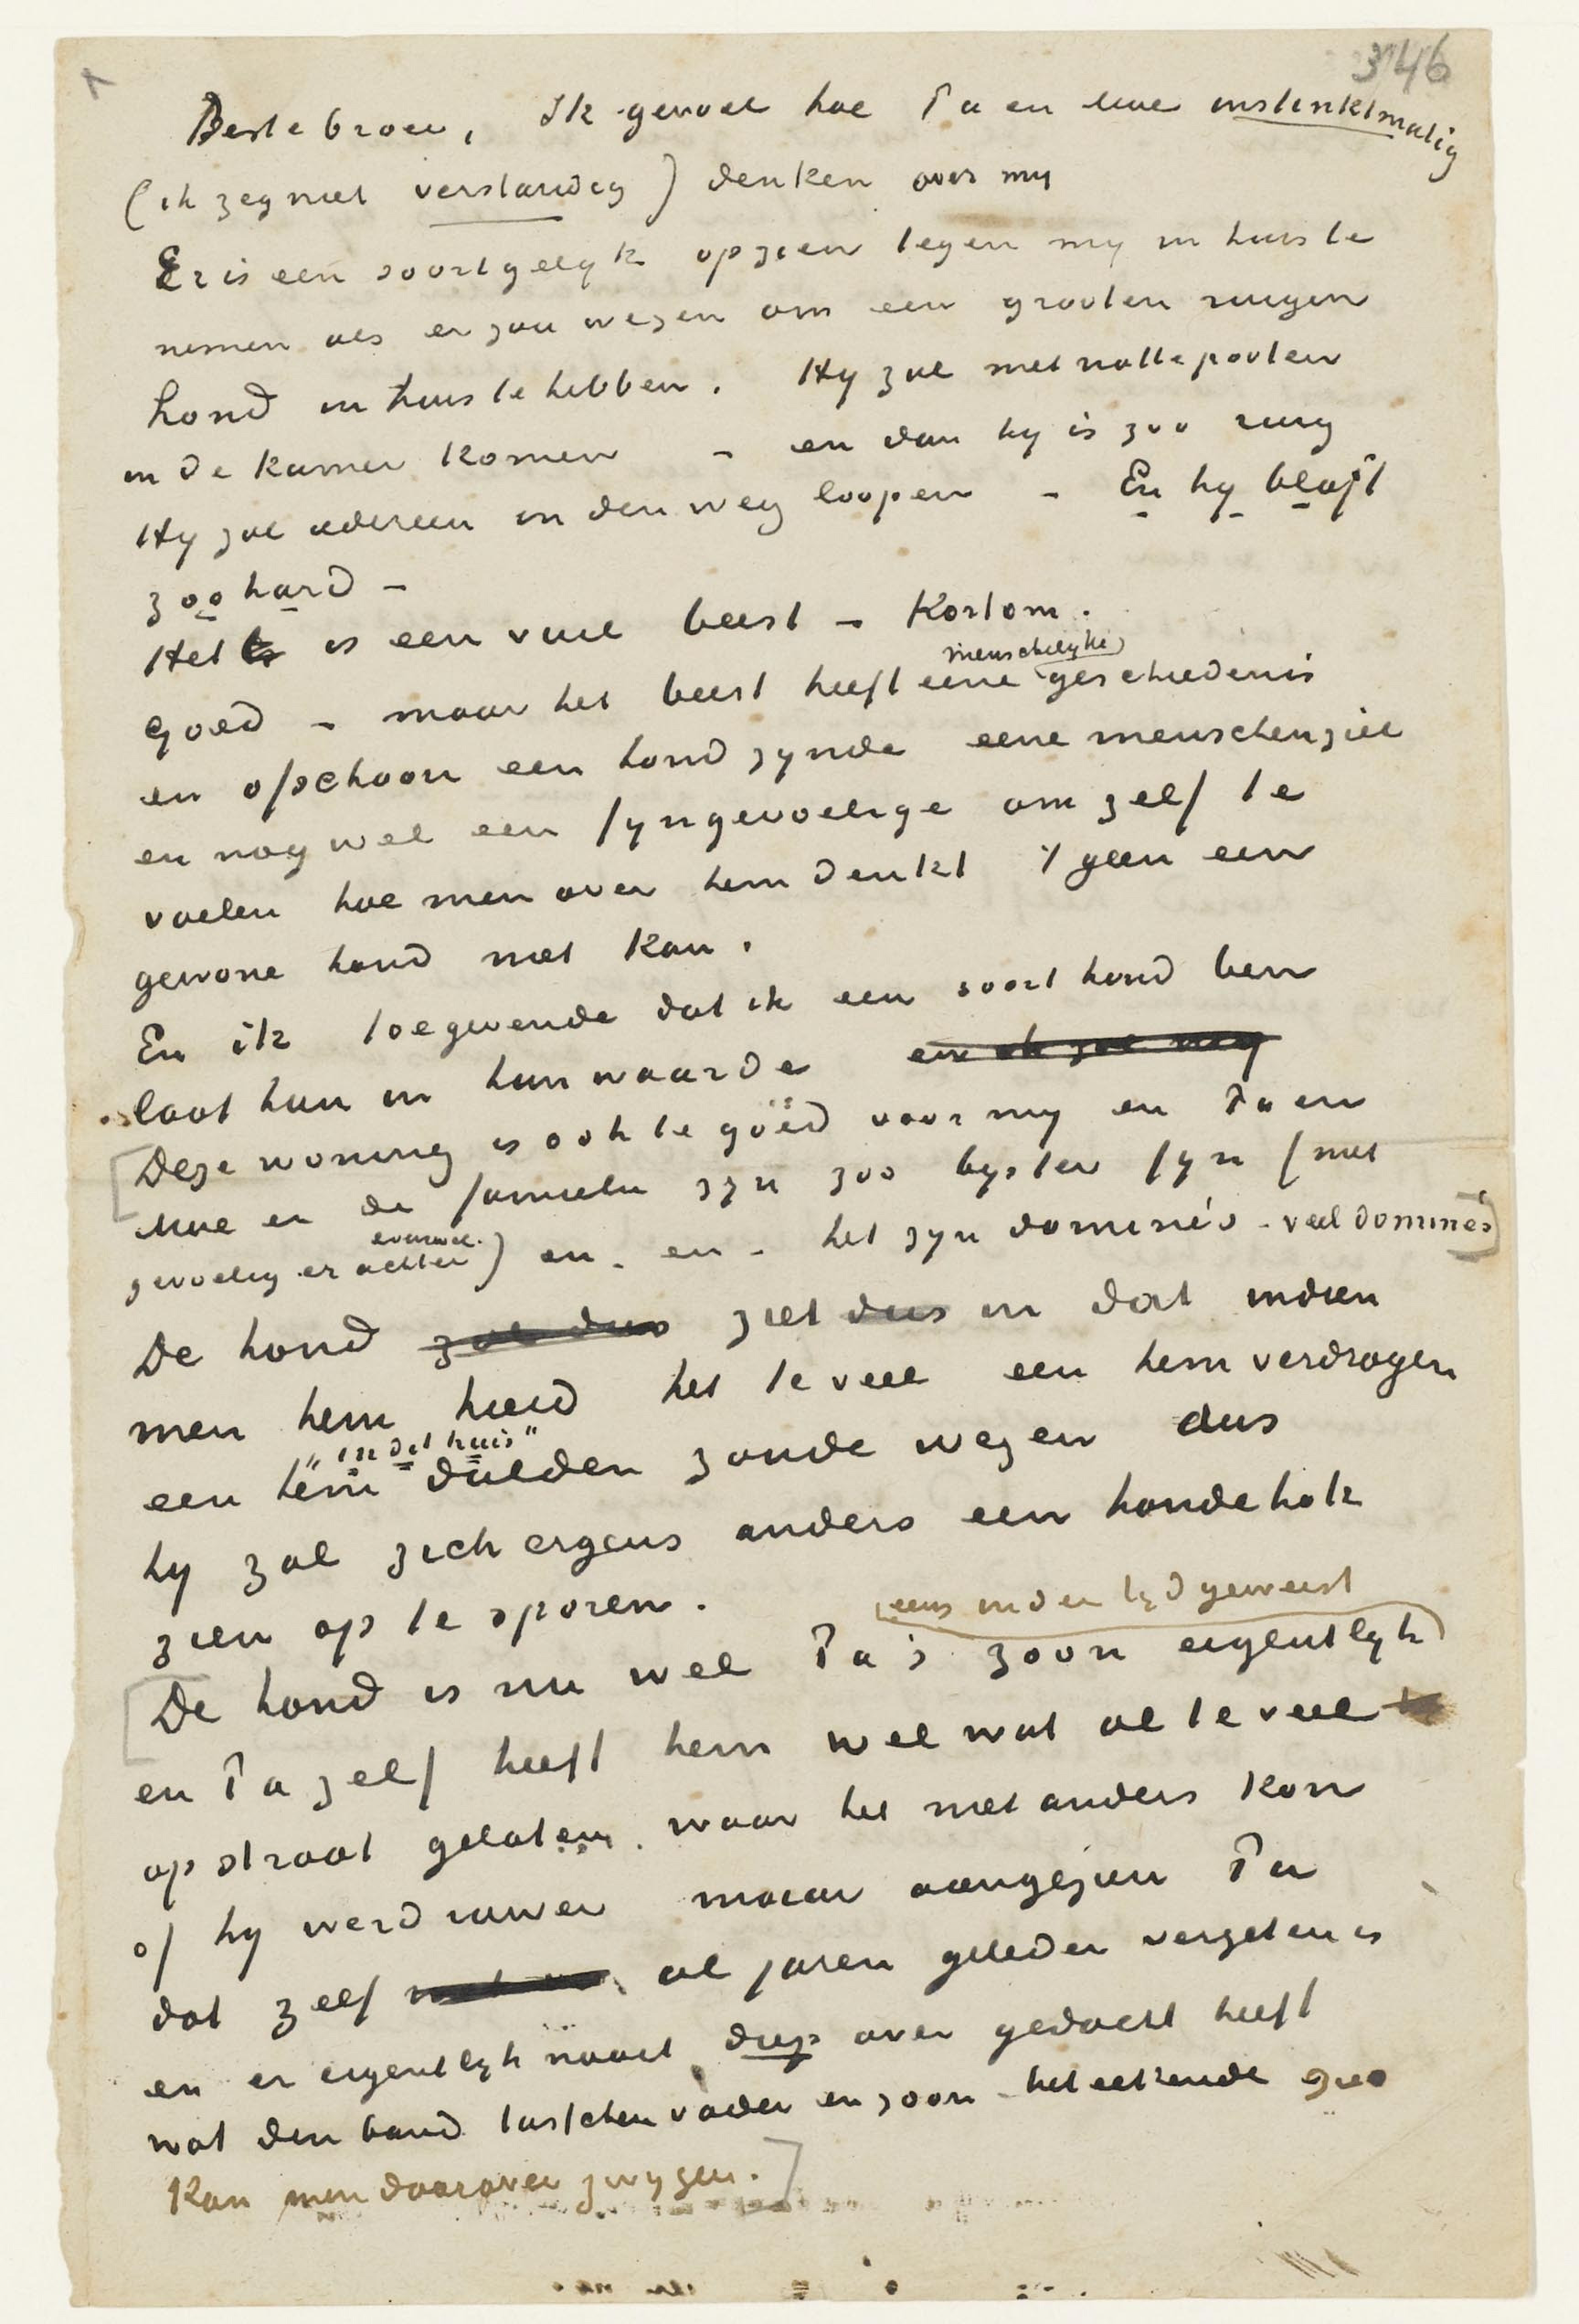 346
Beste broer, Ik gevoel hoe Pa en Moe instinktmatig
(ik zeg niet verstandig) denken over mij
Er is een soortgelijk opzien tegen mij in huis te
nemen als er zou wezen om een grooten ruigen
hond in huis te hebben. Hij zal met natte pooten
in de kamer komen – en dan hij is zoo ruig
Hij zal iedereen in den weg loopen – En hij blaft
zoo hard –
Het is een vuil beest – Kortom.
Goed – maar het beest heeft eene menschelijke geschiedenis
en ofschoon een hond zijnde eene menschenziel
en nog wel een fijngevoelige om zelf te
voelen hoe men over hem denkt 't geen een
gewone hond niet kan.
En ik toegevende dat ik een soort hond ben
laat hun in hun waarde en ik zal nog
[Deze woning is ook te goed voor mij en Pa en
Moe en de familie zijn zoo bijster fijn (niet
gevoelig er achter evenwel.) en – en – het zijn dominés – veel dominés]
De hond zal dus ziet dus in dat indien
men hem hield het te veel een hem verdragen
een hem dulden "in dit huis" zoude wezen dus
hij zal zich ergens anders een hondehok
zien op te sporen.
[De hond is nu wel Pa's zoon eens in der tijd geweest eigentlijk
en Pa zelf heeft hem wel wat al te veel
op straat gelaten waar het niet anders kon
of hij werd ruwer maar aangezien Pa
dat zelf al jaren geleden vergeten is
en er eigentlijk nooit diep over gedacht heeft
wat den band tusschen vader en zoon beteekende zoo
kan men daarover zwijgen.]